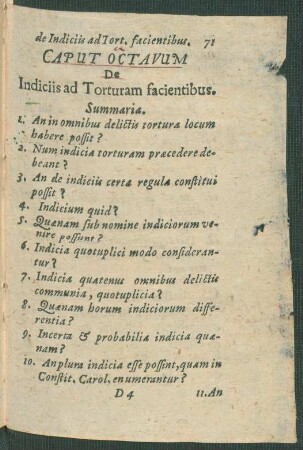 de Indiciis ad Tort. facientibus. 71
CAPUT OCTAVUM
De
Indiciis ad Torturam facientibus.
Summaria.
1. An in omnibus delictis torturæ locum
habere possit?
2. Num indicia torturam præcedere de-
beant?
3. An de indiciis certæ regulæ constitui
possit?
4. Indicium quid?
5. Quænam sub nomine indiciorum ve-
nire possunt?
6. Indicia quotuplici modo consideran-
tur?
7. Indicia quatenus omnibus delictis
communia, quotuplicia?
8. Quænam horum indiciorum diffe-
rentia?
9. Incerta & probabilia indicia quæ-
nam?
10. An plura indicia esse possint, quam in
Constit. Carol. enumerantur?
D 4 11. An